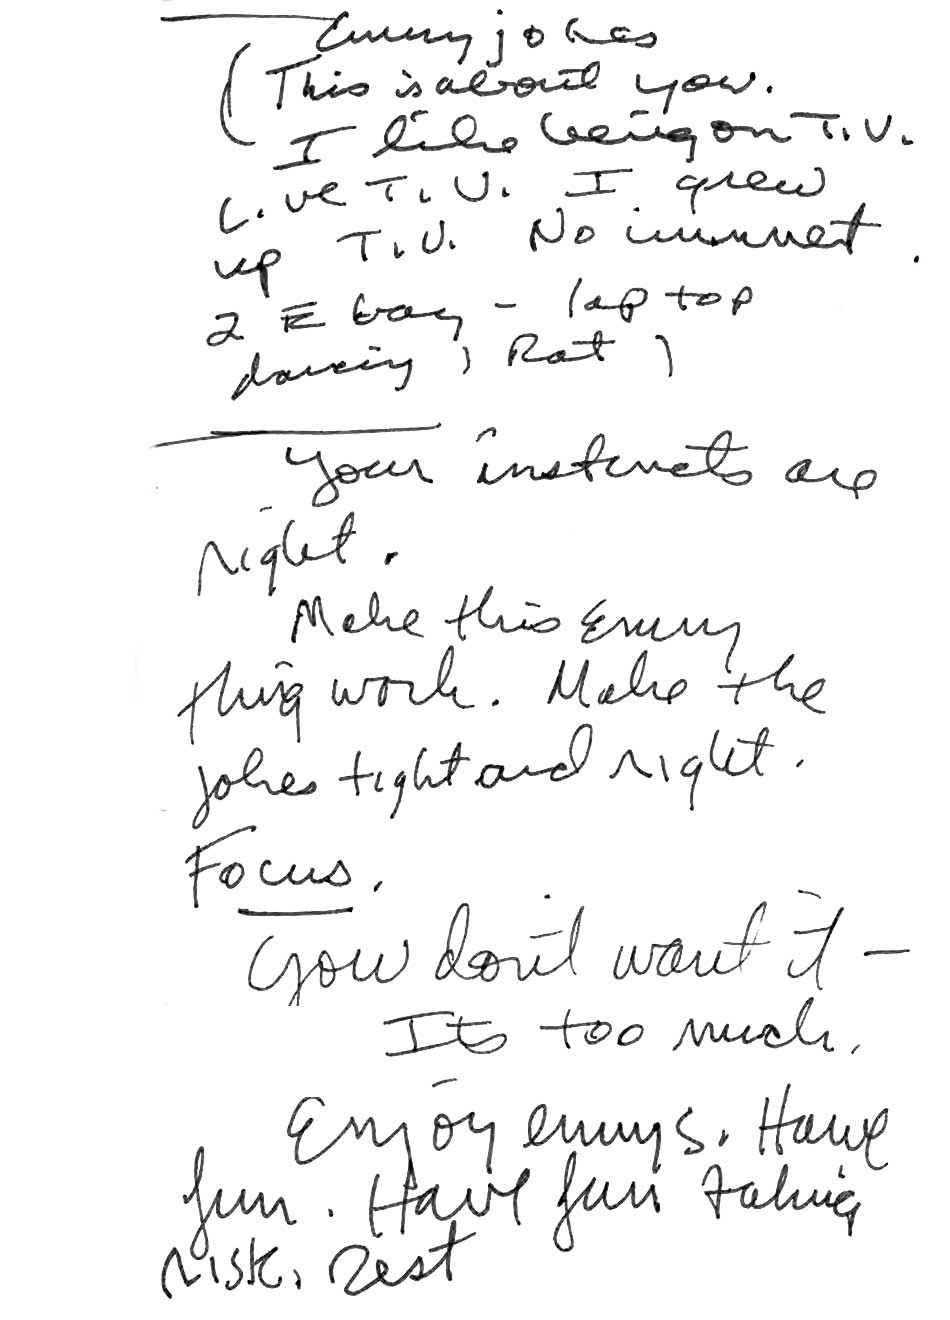 Emmy jokes
(This is about you.
I like being on T.V.
Live T.V. I grew
up T.V. No internet.
2 Ebay - laptop
dancing, Rat,
Your instincts are
right.
Make this Emmy
thing work. Make the
jokes tight and right.
Focus.
You don't want it -
Its too much.
Enjoy emmys. Have
fun. Have fun taking
risk. Zest